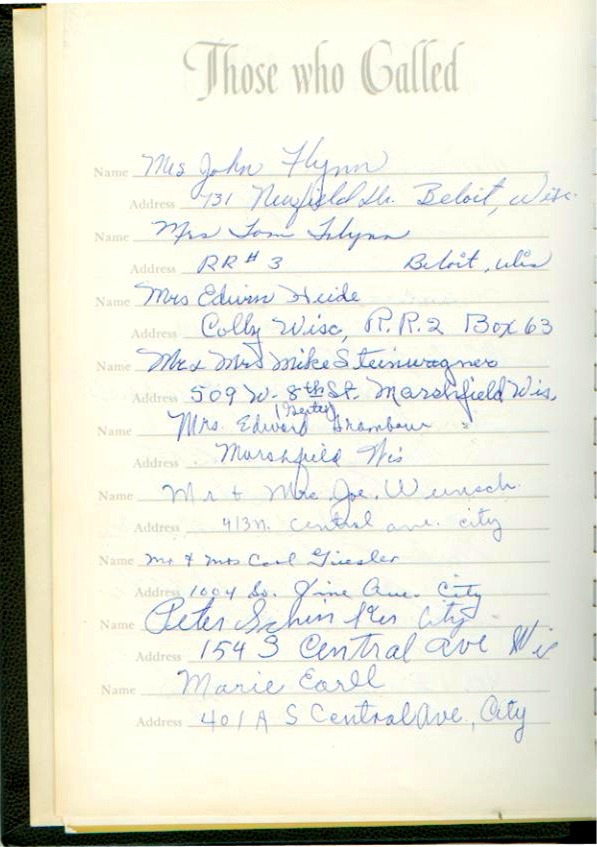 Those who Called
Name Mrs John Flynn
Address 731 Dr. Beloit, Wisc.
Name Mrs Tom Flynn
Address RR # 3 Beloit, Wis
Name Mrs Edwin Heide
Address Colby Wisc, R.R. 2 Box 63
Name Mr & Mrs Mike Steinwagner
Address 509 W. 8th St. Marshfield Wis.
Name Mrs. Edward
Address Marshfield Wis
Name Mr & Mrs Joe. Wunsch.
Address 413 N. Central ave. city
Name Mr & Mrs Carl Giesler
Address 1004 So. Vine Ave. City
Name Peter City
Address 154 S Central ave Wis
Name Marie Earll
Address 401A S Central Ave, City